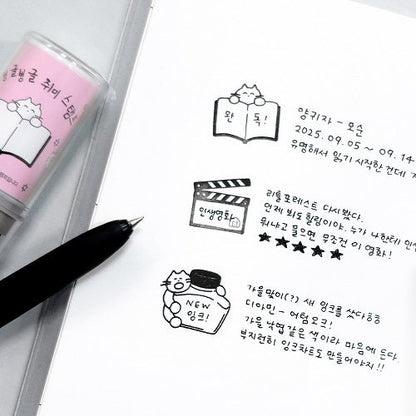 취미 스탬프
완 독!
양귀자 - 모순
2025. 09. 05 ~ 09. 14
유명해서 읽기 시작한건데
인생영화
리틀포레스트 다시봤다.
언제 봐도 힐링이야. 누가 나한테
뭐냐고 물으면 무조건 이 영화!
★★★★★
NEW
잉크!
가을맞이(?) 새 잉크를 샀다ㅎㅎ
디아민 - 어텀오크!
가을 낙엽같은 색이라 마음에 든다.
부지런히 잉크차트도 만들어야지!!